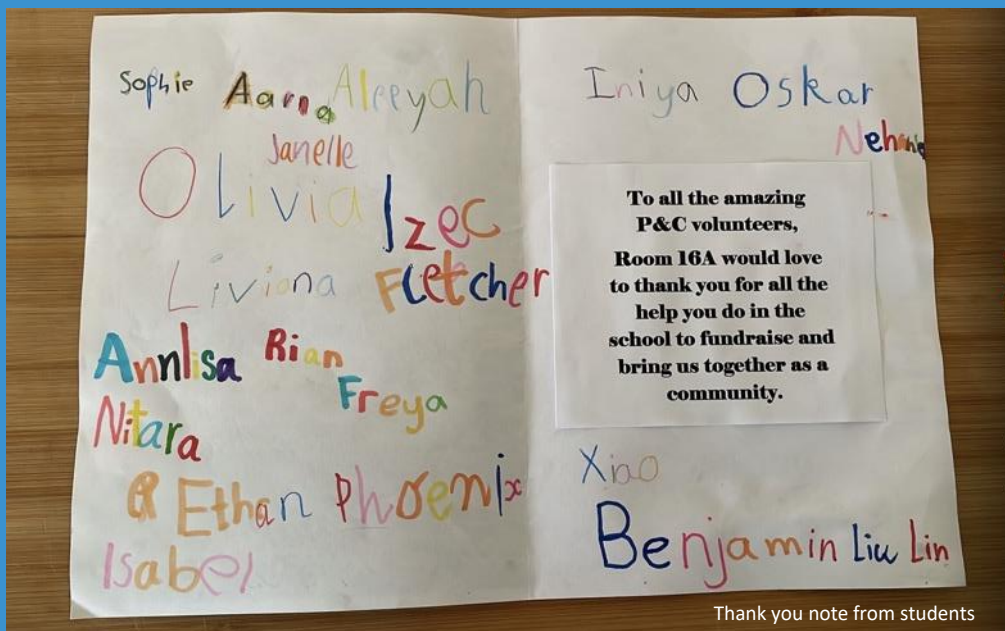 Sophie Aarna Aleeyah
Janelle
Olivia Izec
Liviona Fletcher
Annlisa Rian
Freya
Nitara
Ethan Phoenix
Isabel
Iniya Oskar
To all the amazing
P&C volunteers,
Room 16A would love
to thank you for all the
help you do in the
school to fundraise and
bring us together as a
community.
Xiao
Benjamin Liu Lin
Thank you note from students